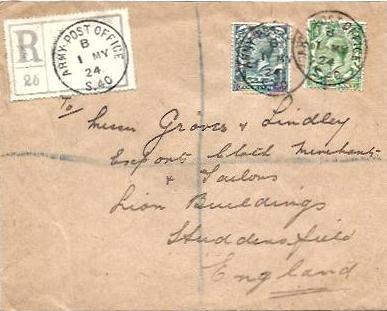 R
26
ARMY POST OFFICE
B
1 MY
24
S.40
ARMY POST OFFICE
B
1 MY
24
S.40
To
Messrs Groves & Lindley
Export Cloth Merchants
& Tailors
Lion Buildings
Huddersfield
England